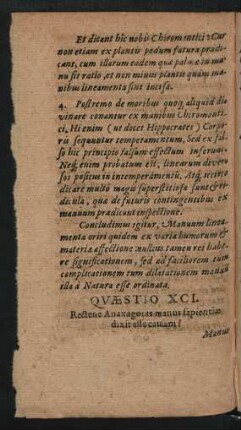 Et dicant hic nobis Chiromantici: Cur
non etiam ex plantis pedum futura prædi-
cant, cum illarum eadem quæ palmæ in ma-
nu sit ratio, et non minus plantis quàm ma-
nibus lineamenta sint incisa.
4. Postremo de moribus quoq; aliquid di-
vinare conantur ex manibus Chiromanti-
ci, Hi enim ( ut docet Hippocrates ) Corpo-
ris sequuntur temperamentum, Sed ex fal-
so hic principio falsum effectum inferunt:
Neq; enim probatum est, linearum diver-
sos positus in intemperamentū. Atq; recivo
dicare multò magis superstitiosa sunt & ri-
dicula, quæ de futuris contingentibus ex
manuum prædicant inspectione.
Concludimus igitur, Manuum linea-
menta oriri quidem ex varia humorum &
materiæ affectione: nullius tamen rei habe-
re significationem, sed ad faciliorem tum
complicationem tum dilatationem manuū
illa à Natura esse ordinata.
QVÆSTIO XCI.
Rectene Anaxagoras manus sapientiæ
dixit esse causam?
Manus